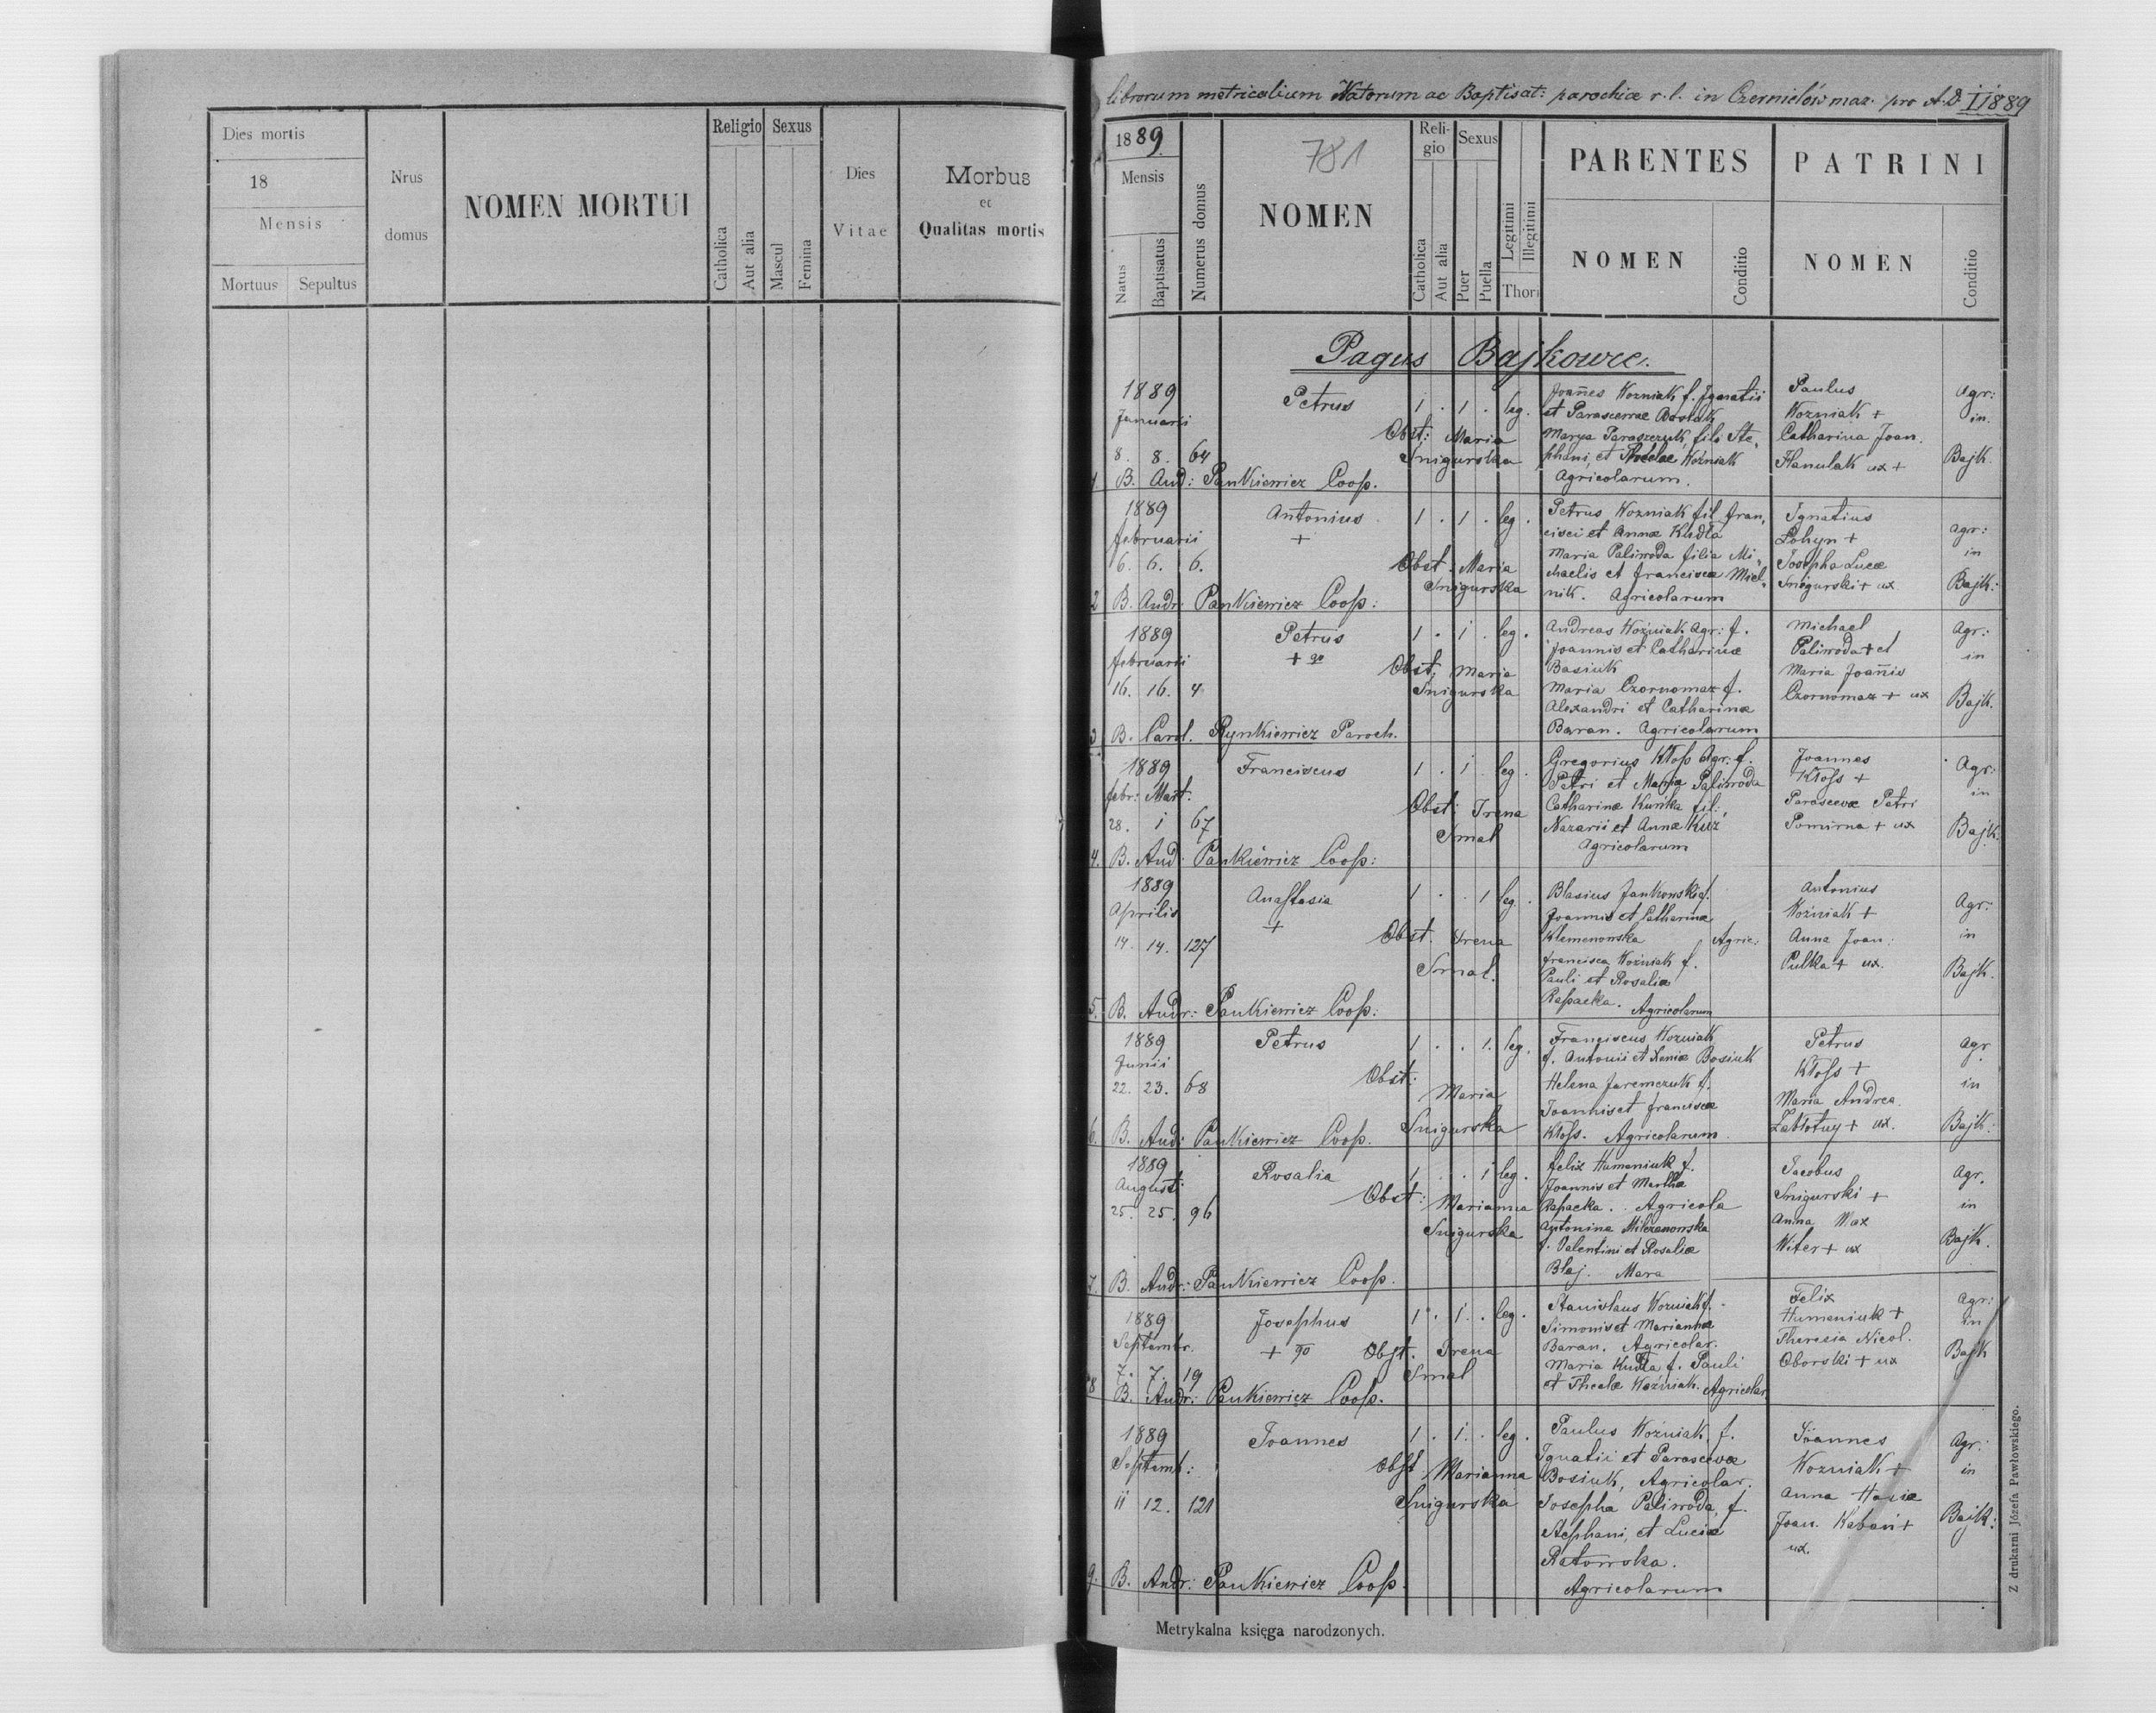 Dies mortis
18
Mensis
Mortuus Sepultus
Nrus
domus
NOMEN MORTUI
Religio Sexus
Catholica
Aut alia
Mascul
Femina
Dies
Vitae
Morbus
et
Qualitas mortis
librorum metricalium Natorum ac Baptisat: parochiæ r. l. in Czernielów maz. pro A. D. 1889
1889.
Mensis
Natus
Baptisatus
Numerus domus
781
NOMEN
Reli-
gio
Sexus
Catholica
Aut alia
Puer
Puella
Legitimi
Illegitimi
Thori
PARENTES
NOMEN
Conditio
PATRINI
NOMEN
Conditio
Pagus Bajkowce.
1889
Januarii
8. 8. 64
Petrus
1 . 1 . leg.
Obst: Maria
Snigurska
Joannes Wozniak f. Ignatii
et Parascevae Bosiuk
Marya Paraszczuk, fil: Ste,
phani, et Theclae Woźniak
Agricolarum.
Paulus
Wozniak +
Catharina Joan.
Hanulak ux +
Agr:
in
Bajk.
1. B. And: Pankiewicz Coop.
1889
februarii
6. 6. 6.
Antonius
+
1 . 1 . leg.
Obst. Maria
Snigurska
Petrus Wozniak fil fran,
cisci et Annæ Kudła
Maria Paliwoda filia Mi
chaelis et francisca Miel,
nik. Agricolarum
Ignatius
Lohyn +
Josepha Lucæ
Snigurski + ux
agr:
in
Bajk:
2 B. Andr: Pankiewicz Coop:
1889
februarii
16. 16. 4
Petrus
+ 90
1 . 1 . leg.
Obst; Maria
Snigurska
Andreas Woźniak Agr: f.
Joannis et Catharinæ
Basiuk
Maria Czornomaz f.
Alexandri et Catharinæ
Baran. Agricolarum
Michael
Paliwoda + et
Maria Joannis
Czornomaz + ux
Agr:
in
Bajk.
3 B. Carol. Rynkiewicz Paroch.
1889
febr: Mart.
28. 1 67
Franciscus
1 . 1 . leg.
Obst: Irena
Smal
Gregorius Kłoss Agr: f.
Petri et Marya Paliwoda
Catharinæ Kunka fil:
Nazarii et Annæ Kuź
Agricolarum
Joannes
Kłoss +
Parascevæ Petri
Pomirna + ux
Agr:
in
Bajk.
4. B. And: Pankiewicz Coop:
1889
Aprilis
14. 14. 127
Anastasia
+
1 . . 1 leg.
Obst. Irena
Smal.
Blasius Jankowski f.
Joannis et Catharinæ
Klemenowska Agric:
francisca Woźniak f.
Pauli et Rosaliæ
Rapacka. Agricolarum
Antonius
Woźniak +
Anna Joan:
Pulka + ux.
Agr:
in
Bajk.
5. B. Andr: Pankiewicz Coop:
1889
Junii
22. 23. 68
Petrus
1 . . 1. leg.
Obst:
Maria
Snigurska
Franciscus Wozniak
f. Antonii et Xeniæ Bosiuk
Helena Jaremczuk f.
Joannis et francisca
Kłoss. Agricolarum
Petrus
Kłoss +
Maria Andrea
Zabłotny + ux.
Agr
in
Bajk:
6. B. And: Pankiewicz Coop.
1889
August:
25. 25. 96
Rosalia
1 . . 1 leg.
Obst: Marianna
Snigurska
felix Humeniuk f.
Joannis et Martha
Rapacka. Agricola
Antonina Milczanowska
f. Valentini et Rosaliæ
Błaj. Mara
Jacobus
Snigurski +
Anna Max
Witer + ux
Agr.
in
Bajk.
7. B. Andr: Pankiewicz Coop.
1889
Septembr.
7. 7. 19
Josephus
+ 90
1 . 1 . leg.
Obst. Irena
Smal
Stanislaus Wozniak f.
Simonis et Marianna
Baran. Agricolar.
Maria Kudła f. Pauli
et Theclæ Woźniak. Agricolar.
Felix
Humeniuk +
Theresia Nicol.
Oborski + ux
Agr:
in
Bajk
8 B. Andr: Pankiewicz Coop.
1889
Septemb:
11 12. 121
Joannes
1 . 1 . leg.
Obst Marianna
Snigurska
Paulus Woźniak, f.
Ignatii et Parascevæ
Bosiuk, Agricolar.
Josepha Paliwoda, f.
Stephani, et Luciæ
Ratowska.
Agricolarum
Joannes
Wozniak +
Anna
Joan. Kaban +
ux.
Agr:
in
Bajk:
9. B. Andr: Pankiewicz Coop.
Metrykalna księga narodzonych.
Z drukarni Józefa Pawłowskiego.